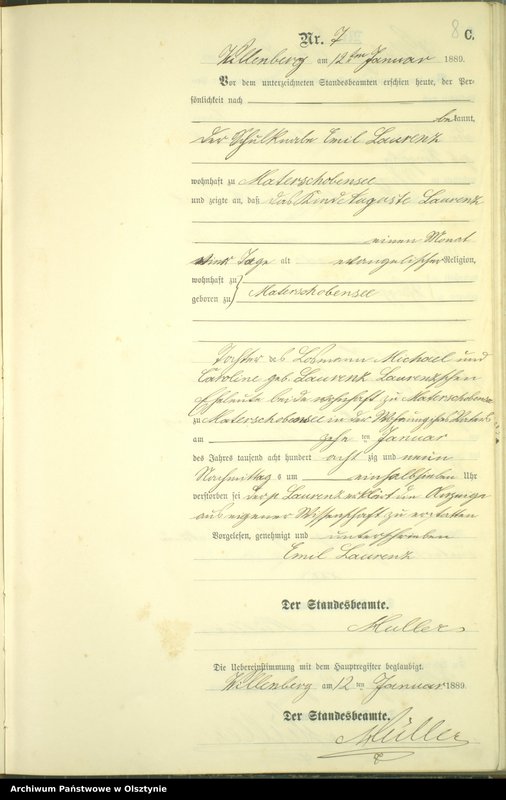 8 C.
Nr. 7
Willenberg am 12ten Januar 1889.
Vor dem unterzeichneten Standesbeamten erschien heute, der Per-
sönlichkeit nach
bekannt,
der Schulknabe Emil Laurenz
wohnhaft zu Materschobensee
und zeigte an, daß das Kind Auguste Laurenz
einen Monat
Tage alt evangelischer Religion,
wohnhaft zu
geboren zu Materschobensee
Tochter Losmann Michael und
Caroline geb. Laurenz Laurenzschen
Eheleute beide wohnhaft zu Materschobensee
zu Materschobensee in der Wohnung
am ten Januar
des Jahres tausend acht hundert acht zig und neun
Nachmittag s um einhalbsieben Uhr
verstorben sei der p. Laurenz erklärt die Anzeige
aus eigener Wissenschaft zu erstatten
Vorgelesen, genehmigt und unterschrieben
Emil Laurenz
Der Standesbeamte.
Müller
Die Uebereinstimmung mit dem Hauptregister beglaubigt.
Willenberg am 12 ten Januar 1889.
Der Standesbeamte.
Müller
Archiwum Państwowe w Olsztynie